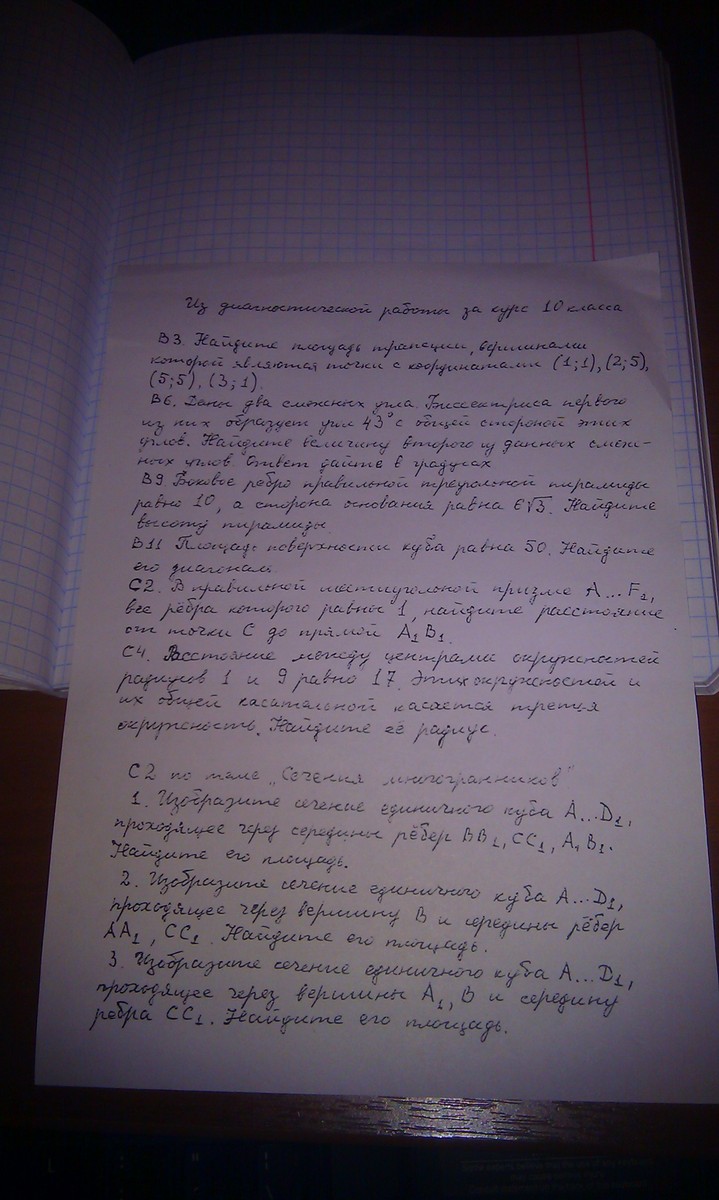 Из диагностической работы за курс 10 класса
В3. Найдите площадь трапеции, вершинами
которой являются точки с координатами (1;1), (2;5),
(5;5), (3;1).
В6. Даны два смежных угла. Биссектриса первого
из них образует угол 43° с общей стороной этих
углов. Найдите величину второго из данных смеж-
ных углов. Ответ дайте в градусах
В9 Боковое ребро правильной треугольной пирамиды
равно 10, а сторона основания равна 6√3. Найдите
высоту пирамиды.
В11 Площадь поверхности куба равна 50. Найдите
его диагональ.
С2. В правильной шестиугольной призме A...F₁,
все рёбра которого равны 1, найдите расстояние
от точки С до прямой A₁B₁.
С4. Расстояние между центрами окружностей
радиусов 1 и 9 равно 17. Этих окружностей и
их общей касательной касается третья
окружность. Найдите её радиус.
С2 по теме „Сечения многогранников"
1. Изобразите сечение единичного куба A...D₁,
проходящее через середины рёбер BB₁, CC₁, A₁B₁.
Найдите его площадь.
2. Изобразите сечение единичного куба A...D₁,
проходящее через вершину В и середины рёбер
AA₁, CC₁. Найдите его площадь.
3. Изобразите сечение единичного куба A...D₁,
проходящее через вершины A₁, B и середину
ребра CC₁. Найдите его площадь.